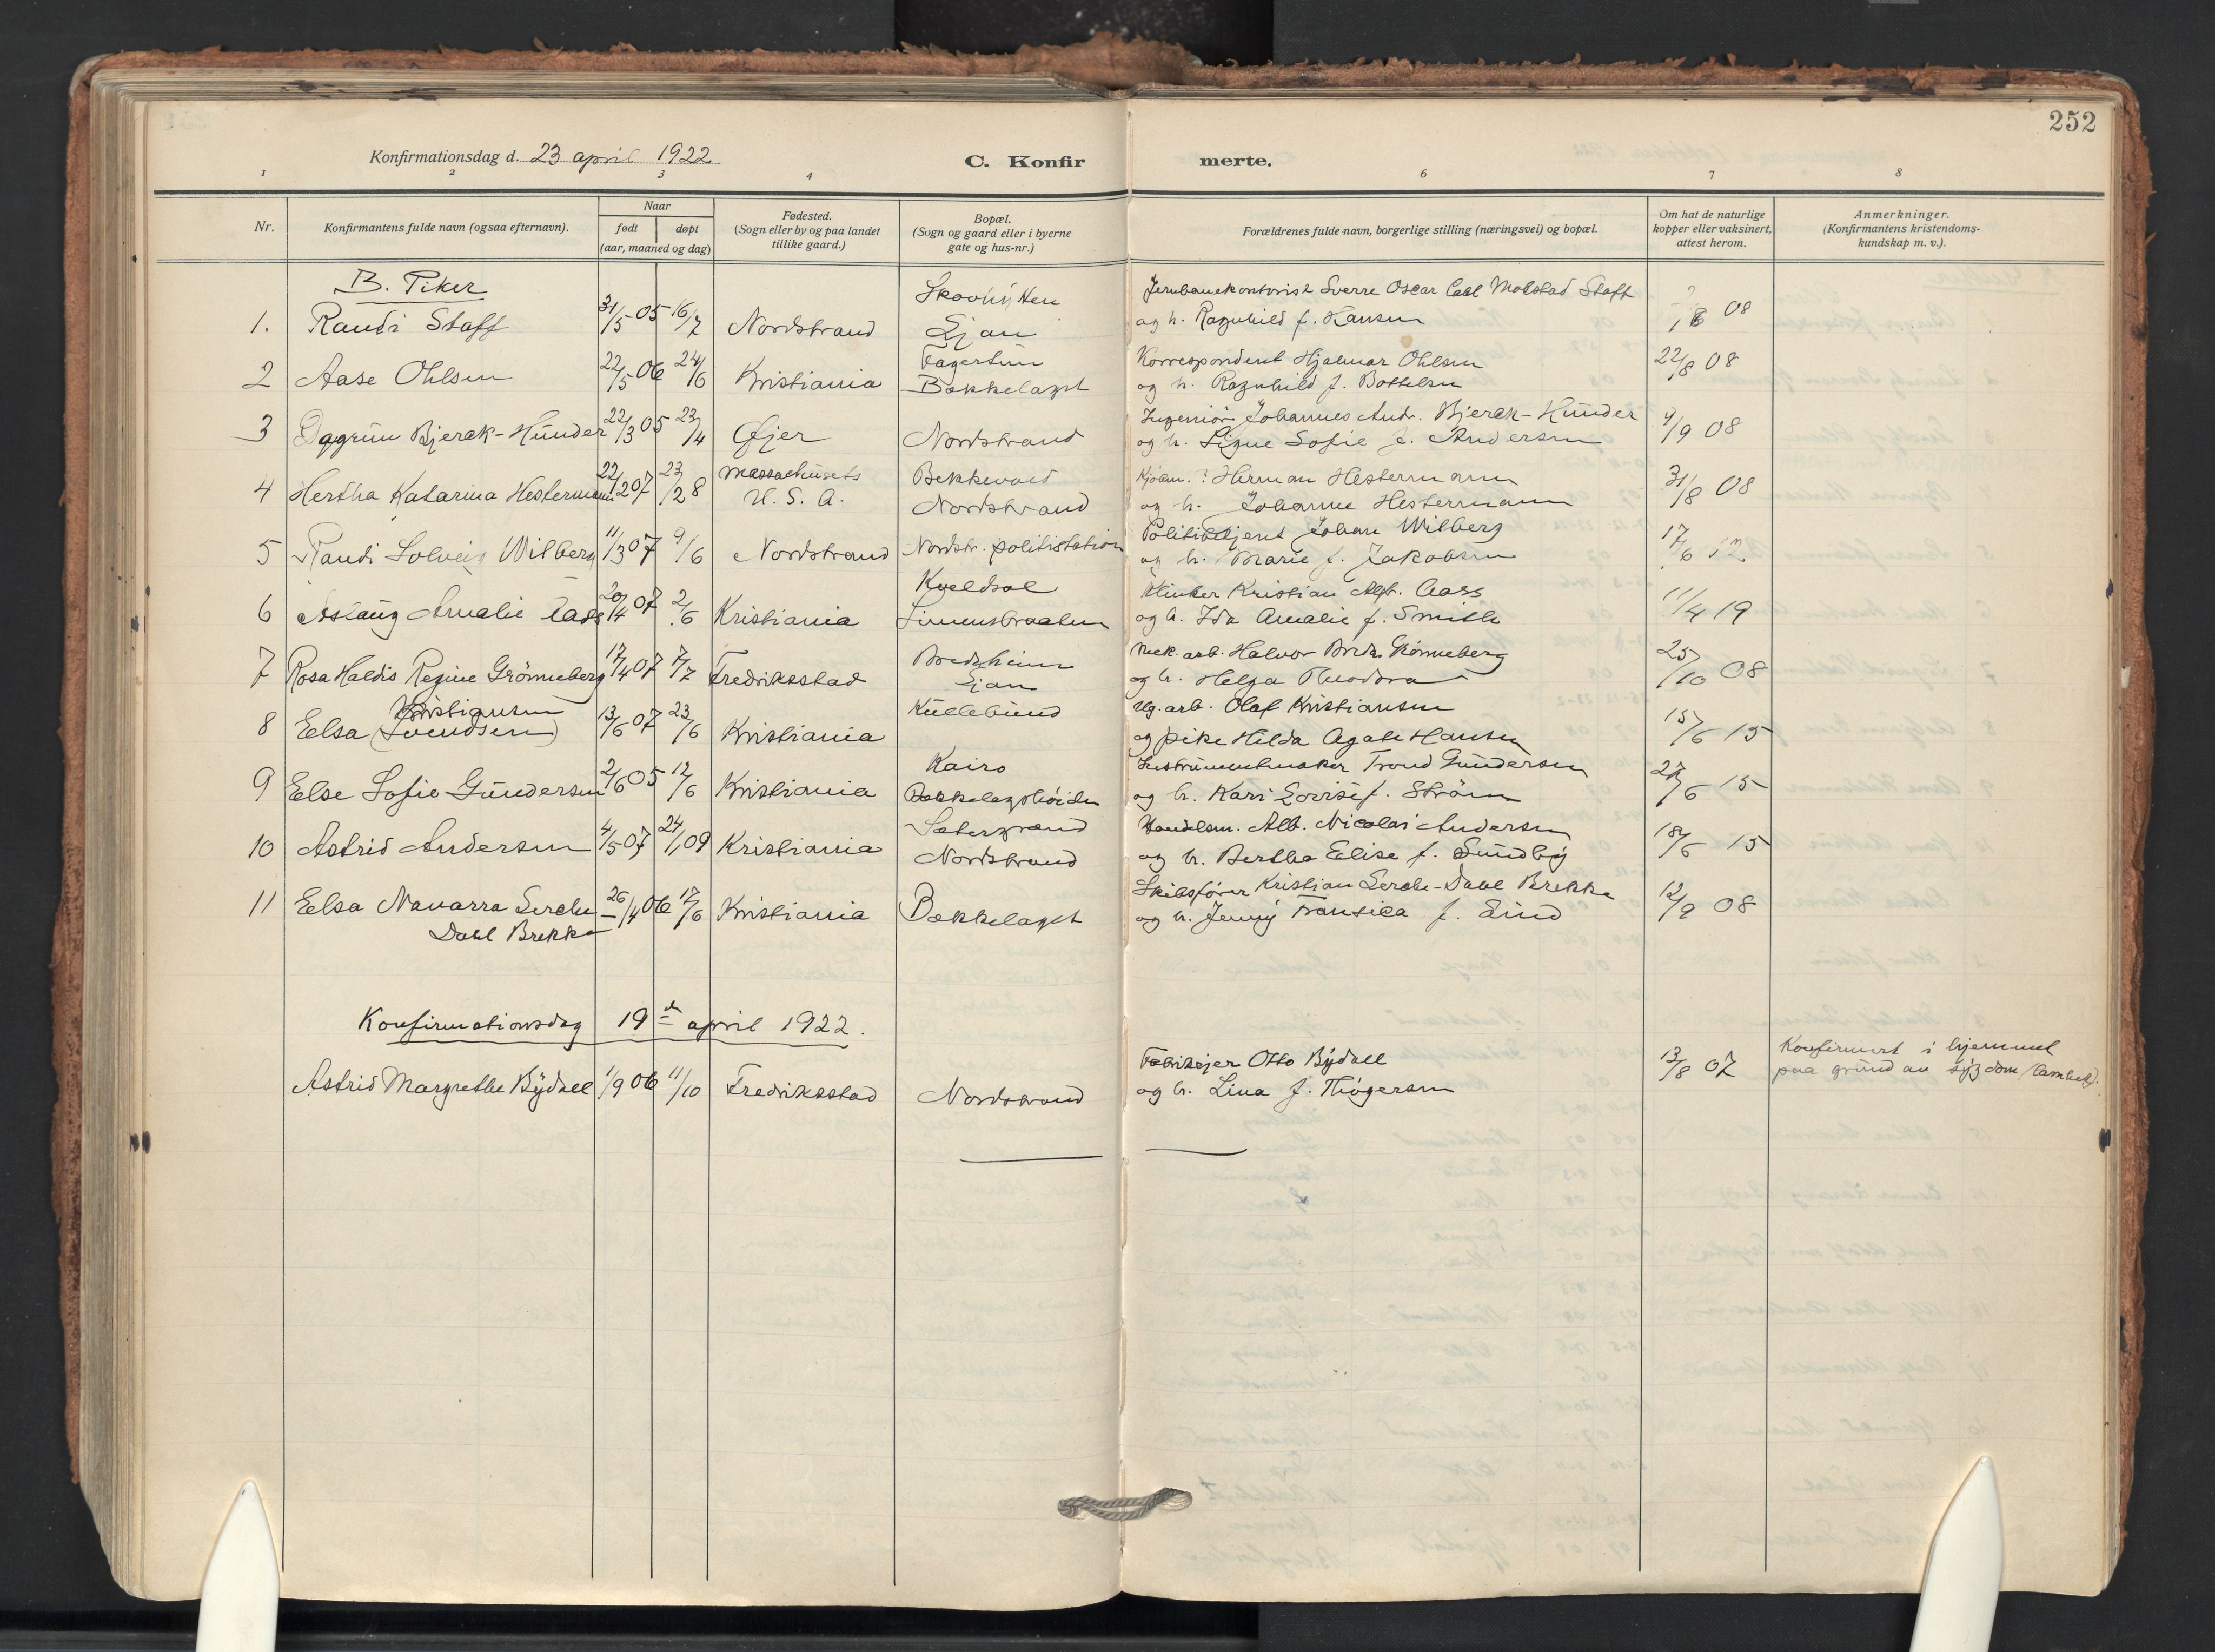 252
Konfirmationsdag d. 23 april 1922
C. Konfirmerte.
1 2 3 4 6 7 8
Nr.
Konfirmantens fulde navn (ogsaa efternavn).
Naar
født døpt
(aar, maaned og dag)
Fødested.
(Sogn eller by og paa landet
tillike gaard.)
Bopæl.
(Sogn og gaard eller i byerne
gate og hus-nr.)
Forældrenes fulde navn, borgerlige stilling (næringsvei) og bopæl.
Om hat de naturlige
kopper eller vaksinert,
attest herom.
Anmerkninger.
(Konfirmantens kristendoms-
kundskap m. v.).
B. Piker
1. Randi Staff 31/5 05 16/7 Nordstrand Ljan
Jernbanekontorist Sverre Oscar Carl Molstad Staff
og h. Ragnhild f. Hansen 08
2 Aase Ohlsen 22/5 06 24/6 Kristiania Fagertun
Bækkelaget
Korrespondent Hjalmar Ohlsen
og h. Ragnhild f. Bottelsen 22/8 08
3 Dagrun Bjerak-Hunder 22/3 05 23/4 Øjer Nordstrand
Ingeniør Johannes Andr. Bjerak-Hunder
og h. Signe Sofie f. Andersen 9/9 08
4 Hertha Katarina Hestermann 22/2 07 23/2 8 Massachusets
U. S. A. Bekkevold
Nordstrand
Kjøbm. Herman Hestermann
og h. Johanne Hestermann 31/8 08
5 Randi Solveig Wilberg 11/3 07 9/6 Nordstrand Nordstr. politistation
Politibetjent Johan Wilberg
og h. Marie f. Jakobsen 17/6 12
6 Aslaug Amalie Aass 20/4 07 2/6 Kristiania Kveldsol
Simensbraaten
Klinker Kristian Alf. Aass
og h. Ida Amalie f. Smith 11/4 19
7 Rosa Haldis Regine Grönneberg 17/4 07 7/7 Fredriksstad Bredsheim
Ljan
Mek. arb. Halvor Grönneberg
og h. Helga Theodora 25/10 08
8 Elsa Kristiansen
(Svendsen) 13/6 07 23/6 Kristiania Kullebund
Ug. arb. Olaf Kristiansen
og pike Hilda Agate Hansen 15/6 15
9 Else Sofie Gundersen 2/6 05 12/6 Kristiania Kairo
Bækkelagshöiden
Instrumentmaker Trond Gundersen
og h. Kari Lovise f. Ström 27/6 15
10 Astrid Andersen 4/5 07 24/1 09 Kristiania Sætergrend
Nordstrand
Handelsm. Alb. Nicolai Andersen
og h. Bertha Elise f. Sundby 18/6 15
11 Elsa Navarra Lerche
Dahl Brekke 26/4 06 17/6 Kristiania Bækkelaget
Skibsfører Kristian Lerche-Dahl Brekke
og h. Jenny Fransisca f. Lund 12/9 08
Konfirmationsdag 19de april 1922.
Astrid Margrethe Bydall 1/9 06 11/10 Fredriksstad Nordstrand
Fabrikejer Otto Bydall
og h. Lina f. Thøgersen 13/8 07
Konfirmert i hjemmet
paa grund av sygdom